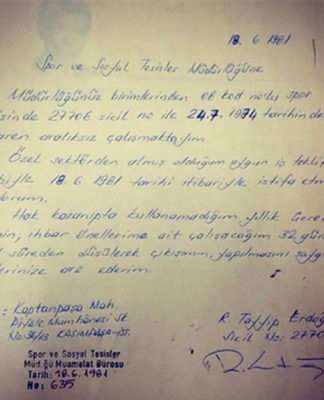 18.6.1981
Spor ve Sosyal Tesisler Müdürlüğüne
Müdürlüğünüz birimlerinden 06 kod nolu spor
isinde 2770E sicil no ile 24.7.1974 tarihinde
aren aralıksız çalışmaktayım.
Özel sektörden almış olduğum uygun iş tekli
biyle 18.6.1981 tarihi itibariyle istifa etm
yorum.
Hak kazanıpta kullanamadığım yıllık ücre
nin, ihbar önellerime ait çalışacağım 32 gün
süreden düşülerek çıkışımın yapılmasını sayg
lerinize arz ederim.
: Kaptanpaşa Mah.
No: 34/13 KASIMPAŞA-İST.
R. Tayyip Erdoğ
Sicil No: 2770
Spor ve Sosyal Tesisler
Müd.ğü Muamelat Bürosu
Tarih: 18.6.1981
No: 635